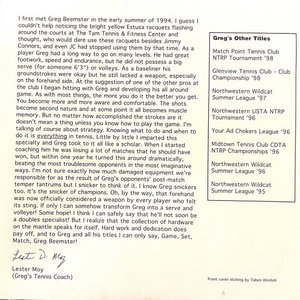 I first met Greg Beemster in the early summer of 1994. I guess I
couldn't help noticing the bright yellow Estusa racquets flashing
around the courts at The Tam Tennis & Fitness Center and
thought, who would dare use these racquets besides Jimmy
Connors, and even JC had stopped using them by that time. As a
player Greg had a long way to go on many levels. He had great
footwork, speed and endurance, but he did not possess a big
serve (for someone 6'3") or volleys. As a baseliner his
groundstrokes were okay but he still lacked a weapon, especially
on the forehand side. At the suggestion of one of the other pros at
the club I began hitting with Greg and developing his all around
game. As with most things, the more you do it the better you get.
You become more and more aware and comfortable. The shots
become second nature and at some point it all becomes muscle
memory. But no matter how accomplished the strokes are it
doesn't mean a thing unless you know how to play the game. I'm
talking of course about strategy. Knowing what to do and when to
do it is everything in tennis. Little by little I imparted this
specialty and Greg took to it all like a scholar. When I started
coaching him he was losing a lot of matches that he should have
won, but within one year he turned this around dramatically,
beating the most troublesome opponents in the most imaginative
ways. I'm not sure exactly how much damaged equipment we're
responsible for as the result of Greg's opponents' post-match
temper tantrums but I snicker to think of it. I know Greg snickers
too. It's the snicker of champions. Oh, by the way, that forehand
was now officially considered a weapon by every player who felt
its sting. If only I can somehow transform Greg into a serve and
volleyer! Some hope! I think I can safely say that he'll not soon be
a doubles specialist! But I realize that the collection of hardware
on the mantle speaks for itself. Hard work and dedication does
pay off, and to Greg and all his titles I can only say, Game, Set,
Match, Greg Beemster!
Lest D. Moy
Lester Moy
(Greg's Tennis Coach)
Greg's Other Titles
Match Point Tennis Club
NTRP Tournament '98
Glenview Tennis Club - Club
Championship '98
Northwestern Wildcat
Summer League '97
Northwestern USTA NTRP
Tournament '96
Your Ad Chokers League '96
Midtown Tennis Club CDTA
NTRP Championships '96
Northwestern Wildcat
Summer League '96
Northwestern Wildcat
Summer League '95
Front cover etching by Tobon Windahl